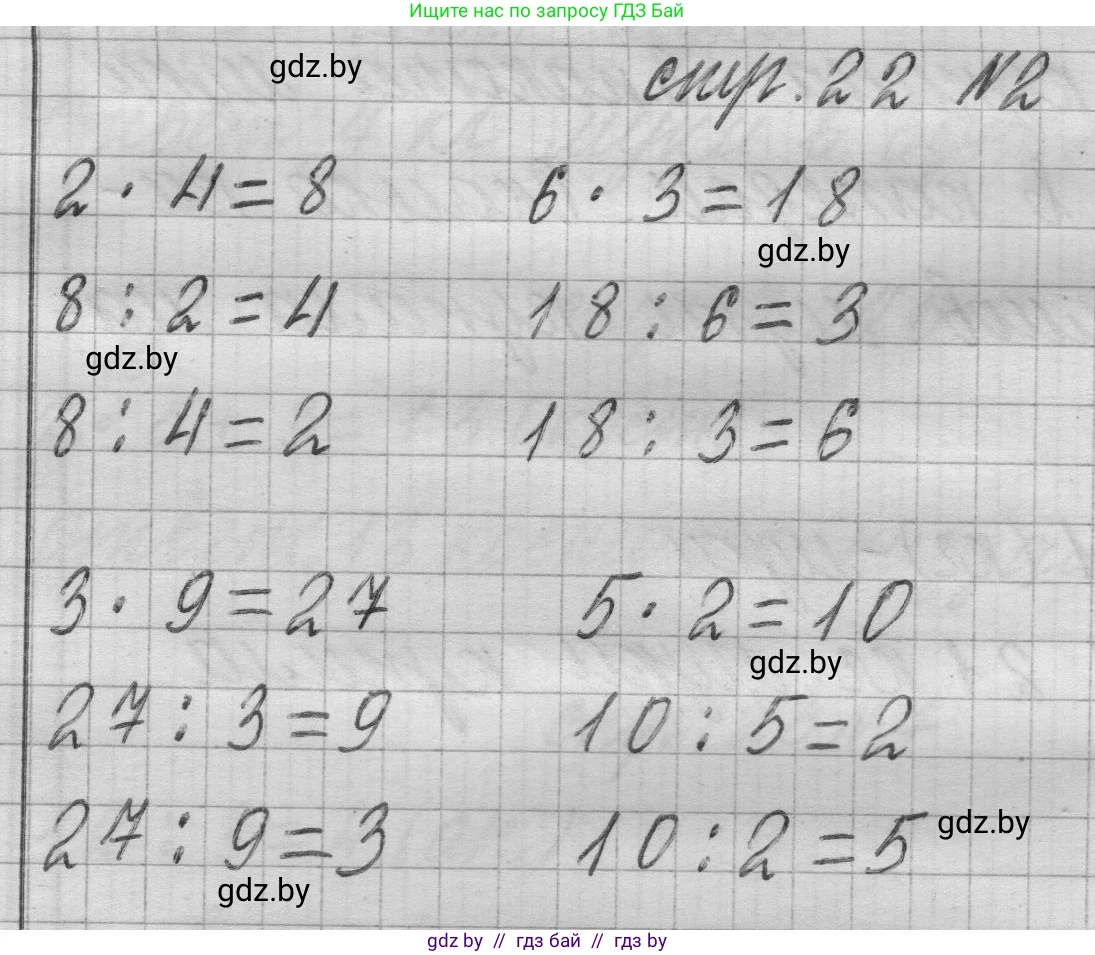 Ищите нас по запросу ГДЗ Бай
gdz.by
стр. 22 №2
2 · 4 = 8 6 · 3 = 18
gdz.by
8 : 2 = 4 18 : 6 = 3
gdz.by
8 : 4 = 2 18 : 3 = 6
3 · 9 = 27 5 · 2 = 10
gdz.by
27 : 3 = 9 10 : 5 = 2
27 : 9 = 3 10 : 2 = 5
gdz.by
gdz.by
gdz by // гдз бай // гдз by